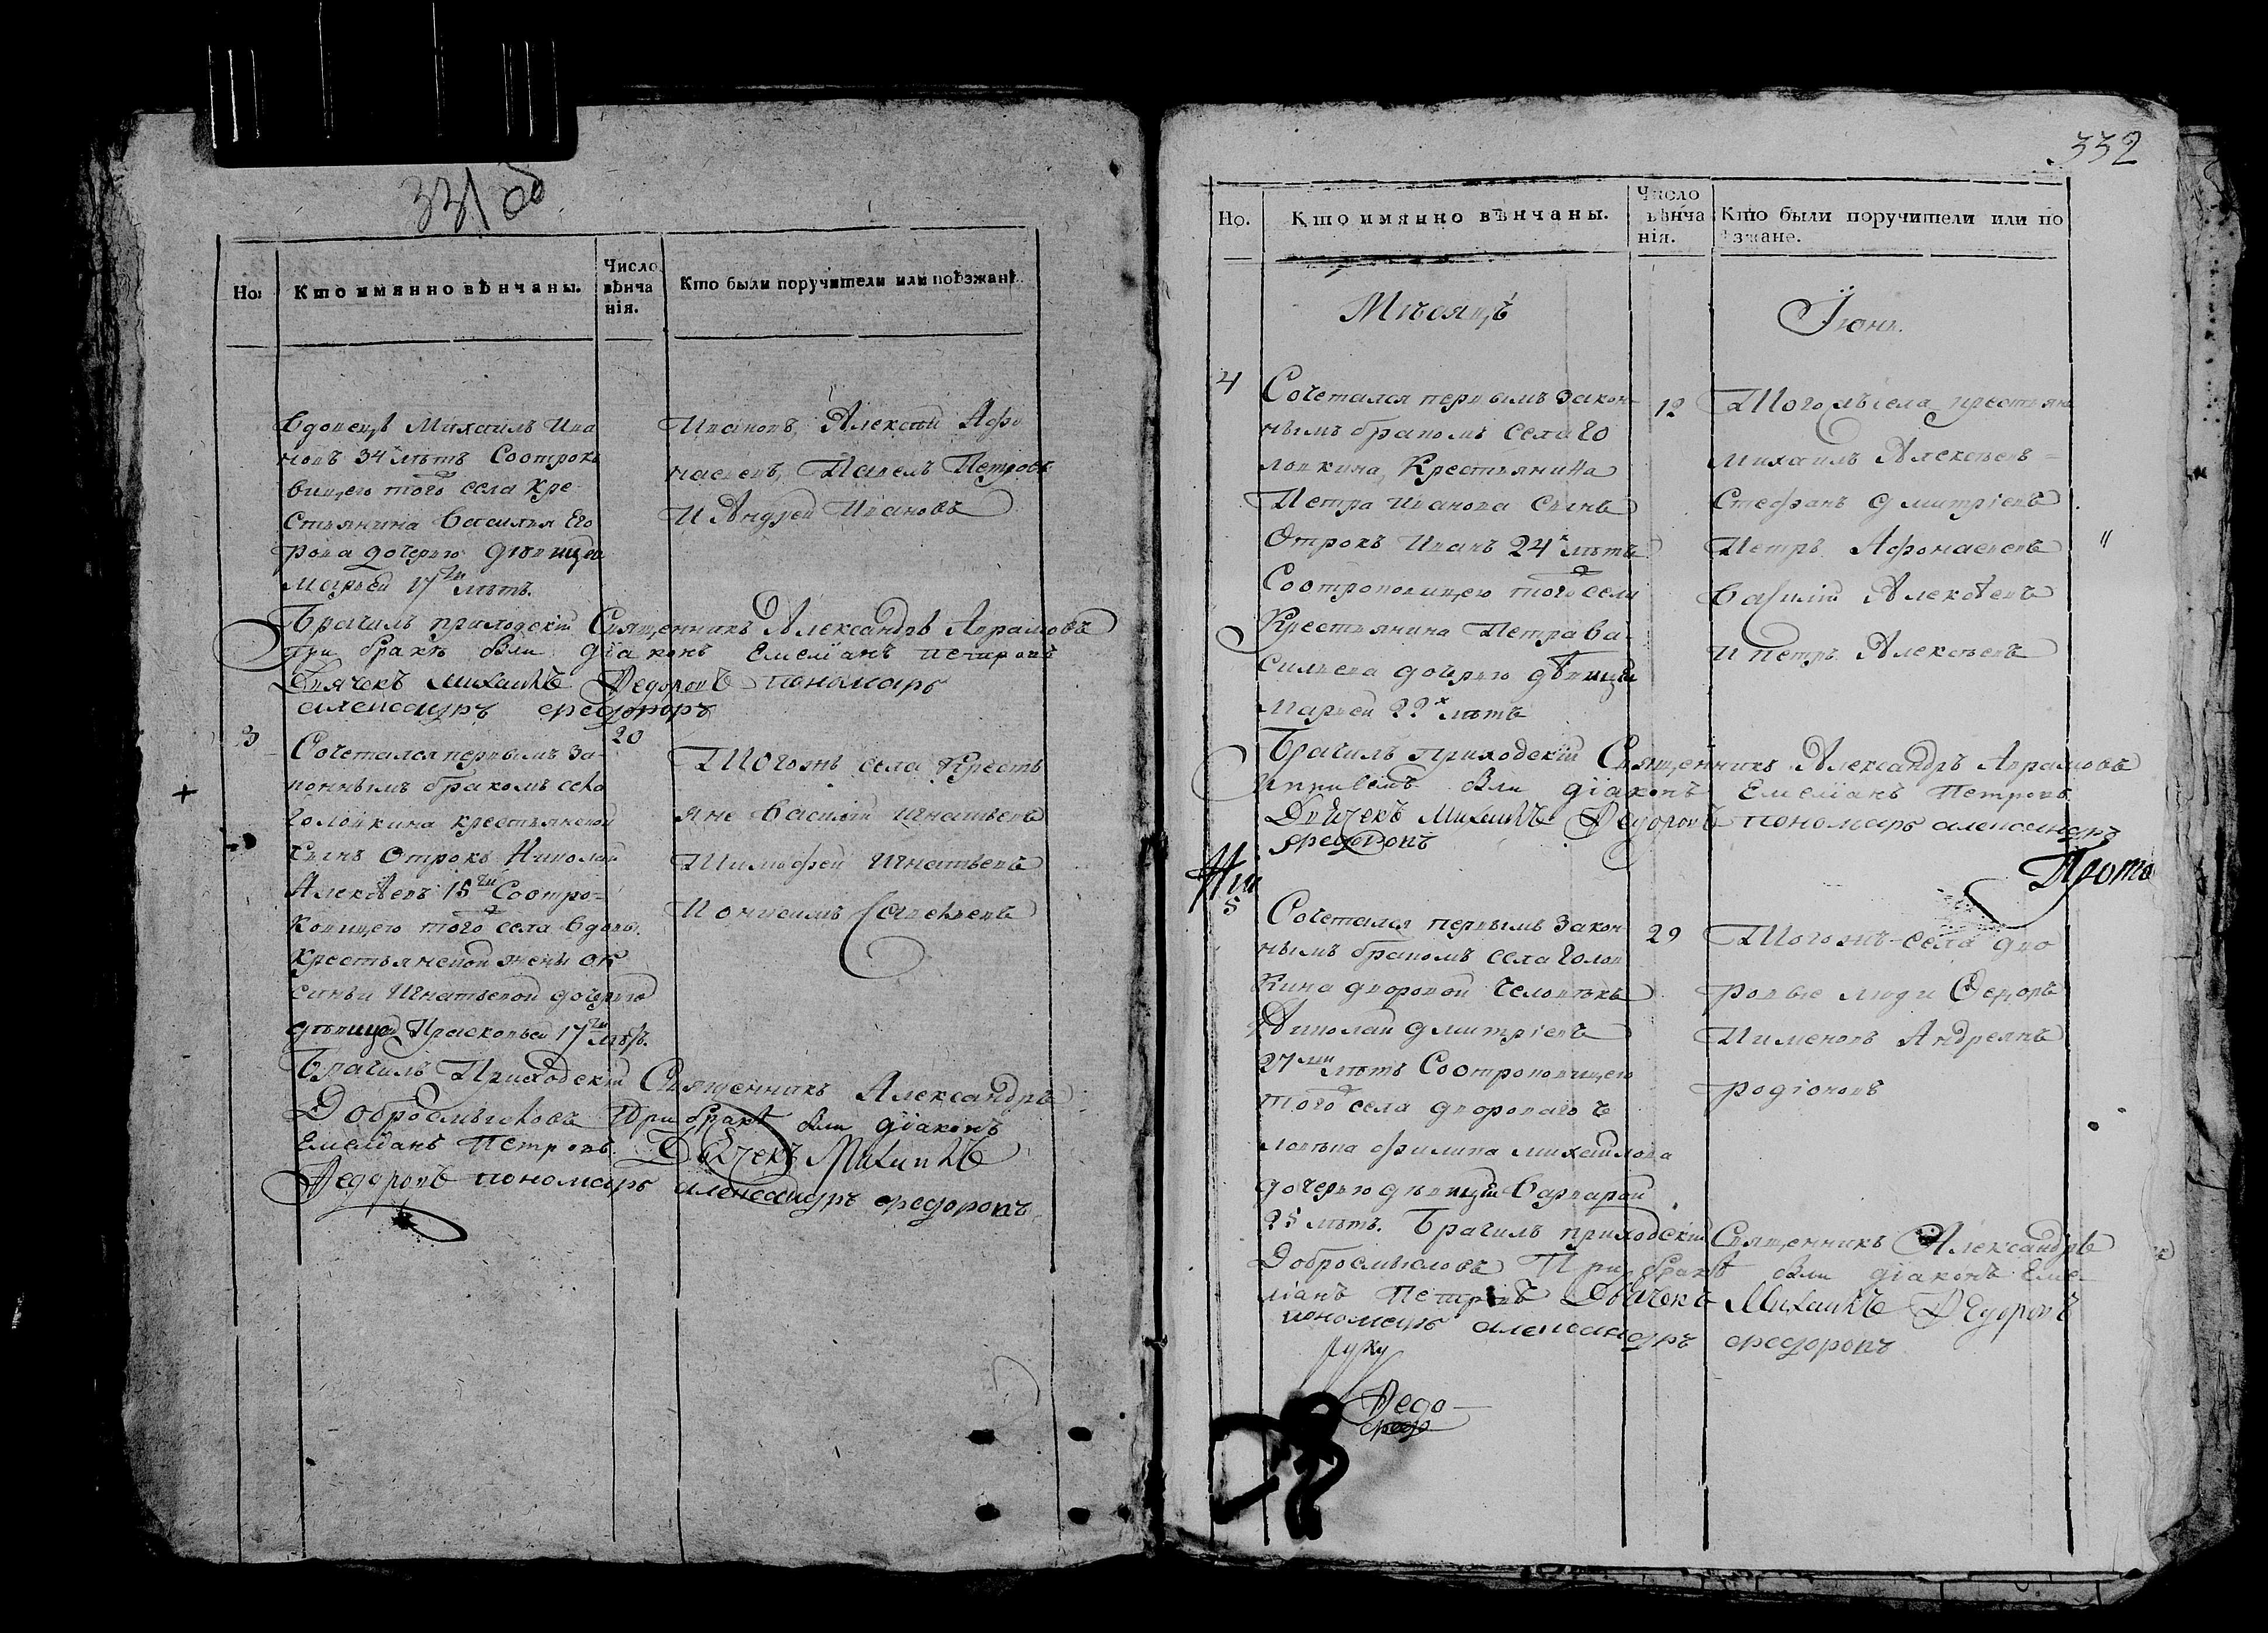 331 об
Но:
Кто имянно вѣнчаны.
Число
вѣнча
нія.
Кто были поручители или поѣзжане.
вдовецъ Михаилъ Ива
новъ 34 лѣтъ Соотроко
вицею того села кре
стьянина Василья Его
рова дочерью дѣвицею
Марьей 17ти лѣтъ.
Ивановъ, Алексѣй Афо
насьевъ, Павелъ Петровъ
И Андрей Ивановъ
Брачилъ приходскій Священникъ Александръ Аврамовъ
при бракѣ были діаконъ Емеліанъ Петровъ
Дьячекъ Михаилъ Федоровъ пономарь
александръ федоровъ
3
Сочетался первымъ за-
коннымъ бракомъ села
Головкина крестьянской
сынъ Отрокъ Николай
Алексѣевъ 15ти Соотро=
ковицею того села вдовы
крестьянской жены Ок
синьи Игнатьевой дочерью
дѣвицей Праскопьей 17ти лѣтъ.
20
Тогожъ села Кресть
яне Василій Игнатьевъ
Тимофей Игнатьевъ
И онисимъ Савельевъ
Брачилъ Приходскій Священникъ Александръ
Добросмысловъ При бракѣ были діаконъ
Емеліанъ Петровъ Дьячекъ Михаилъ
Федоровъ пономарь александръ федоровъ
332
Но.
Кто имянно вѣнчаны.
Число
вѣнча
нія.
Кто были поручители или по
ѣзжане.
Мѣсяцъ
Іюнь.
4
Сочетался первымъ закон-
нымъ бракомъ села Го
ловкина, Крестьянина
Петра Иванова Сынъ
Отрокъ Иванъ 24х лѣтъ
Соотроковицею того села
Крестьянина Петра Ва-
сильева дочерью дѣвицей
Марьей 22х лѣтъ
12
Тогожъ села крестьяне
Михаилъ Алексѣевъ =
Стефанъ Дмитріевъ
Петръ Афонасьевъ
Василій Алексѣевъ
И петръ Алексѣевъ
Брачилъ приходскій Священникъ Александръ Аврамовъ
При семъ были діаконъ Емеліанъ Петровъ
Дьячекъ Михаилъ Федоровъ пономарь александръ
федоровъ
Прото
5
Сочетался первымъ закон
нымъ бракомъ села Голов
кина дворовой Человѣкъ
Николай Дмитріевъ
27ми лѣтъ Соотроковицею
того села двороваго че
ловѣка Филипа Михайлова
дочерью дѣвицей Варварой
25 лѣтъ. Брачилъ приходскій Священникъ Александръ
29
Тогожъ села дво
ровые люди Федоръ
Пименовъ Андреянъ
родіоновъ
Добросмысловъ При бракѣ были діаконъ Еме-
ліанъ Петровъ Дьячекъ Михаилъ Федоровъ
пономарь александръ федоровъ
руку
Федо
федо